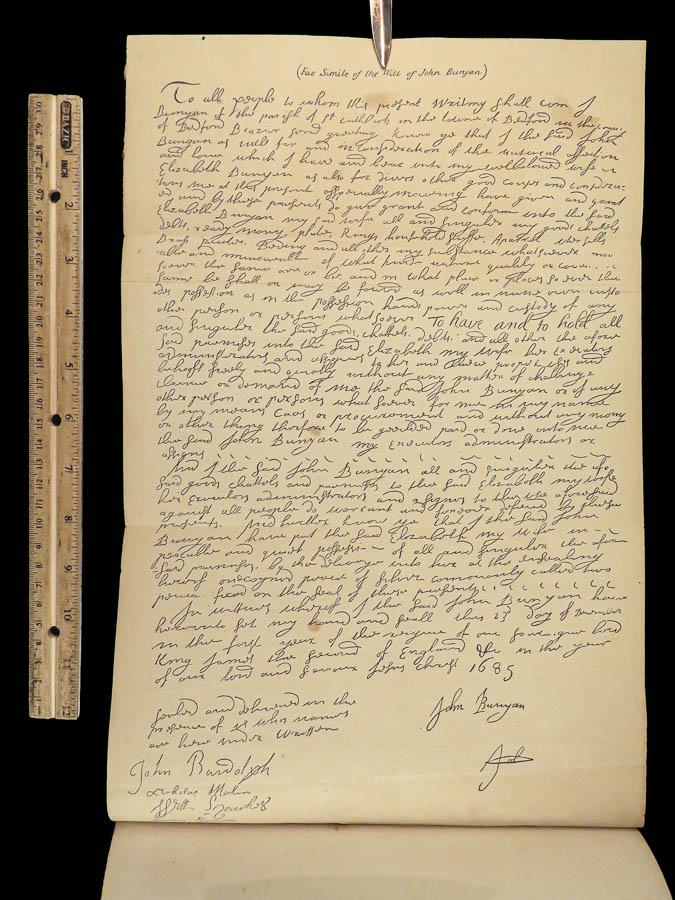 (Fac Simile of the Will of John Bunyan)
To all people to whom this present Writing shall com I
Bunyan of the parish of st cuthberts in the towne of Bedford in the county
of Bedford Brazier send greeting, know ye that I the said John
Bunyan as well for and in consideration of the natural affection
and Love which I have and bear unto my welbeloved wife
Elizabeth Bunyan as also for divers other good causes and considera-
tions me at this present especially moving have given and grant
ed and by these presents do give grant and conform unto the said
Elizabeth Bunyan my said wife all and singuler my goods chattels
debts, ready mony, plate, Rings, household stuffe, Aparrel utensills
Brass pewter, Beding and all other my substance whatsoever mov
eable and immoveable of what kinde nature quality or
soever the same are or be, and in what place or places soever the
same be shall or may be found as well in mine own custo
des possession as in the possession hands, power and custody of any
other person or persons whatsoever To have and to hold all
and singuler the said goods, chattels, debts, and all other the afore
said premises unto the said Elizabeth my wife her executors
administrators and assignes to her and theire proper uses and
behoofs freely and quietly without any matter of challinge
claime or demand of me the said John Bunyan or of any
other person or persons whatsoever for me in my name
by my means Caus or procurement and without any mony
or other thing therfore to be yeelded paid or done unto mee
the said John Bunyan my executors administrators or
assigns
And I the said John Bunyan all and singuler the afo
said goods chattels and premises to the said Elizabeth my wife
her executors administrators and assignes to the use aforesaid
against all people do warrant and forever defend by these
presents. And further know ye that I the said John
Bunyan have put the said Elizabeth my wife in
peacable and quiet possession of all and singuler the afore
said premises, by the delivrye unto her at the ensealing
hereof one coyned peece of silver commonly called two
pence fixed on the seal of these presents
In witnes wherof I the said John Bunyan have
hereunto set my hand and seall this 23d day of December
in the first year of the reigne of our soveraigne lord
King James the second of England &c in the year
of our lord and saviour Jesus Christ 1685
Sealed and delivered in the
presence of us whos names
are here under written
John Bunyan
John Bardolph
Nicholas Malin